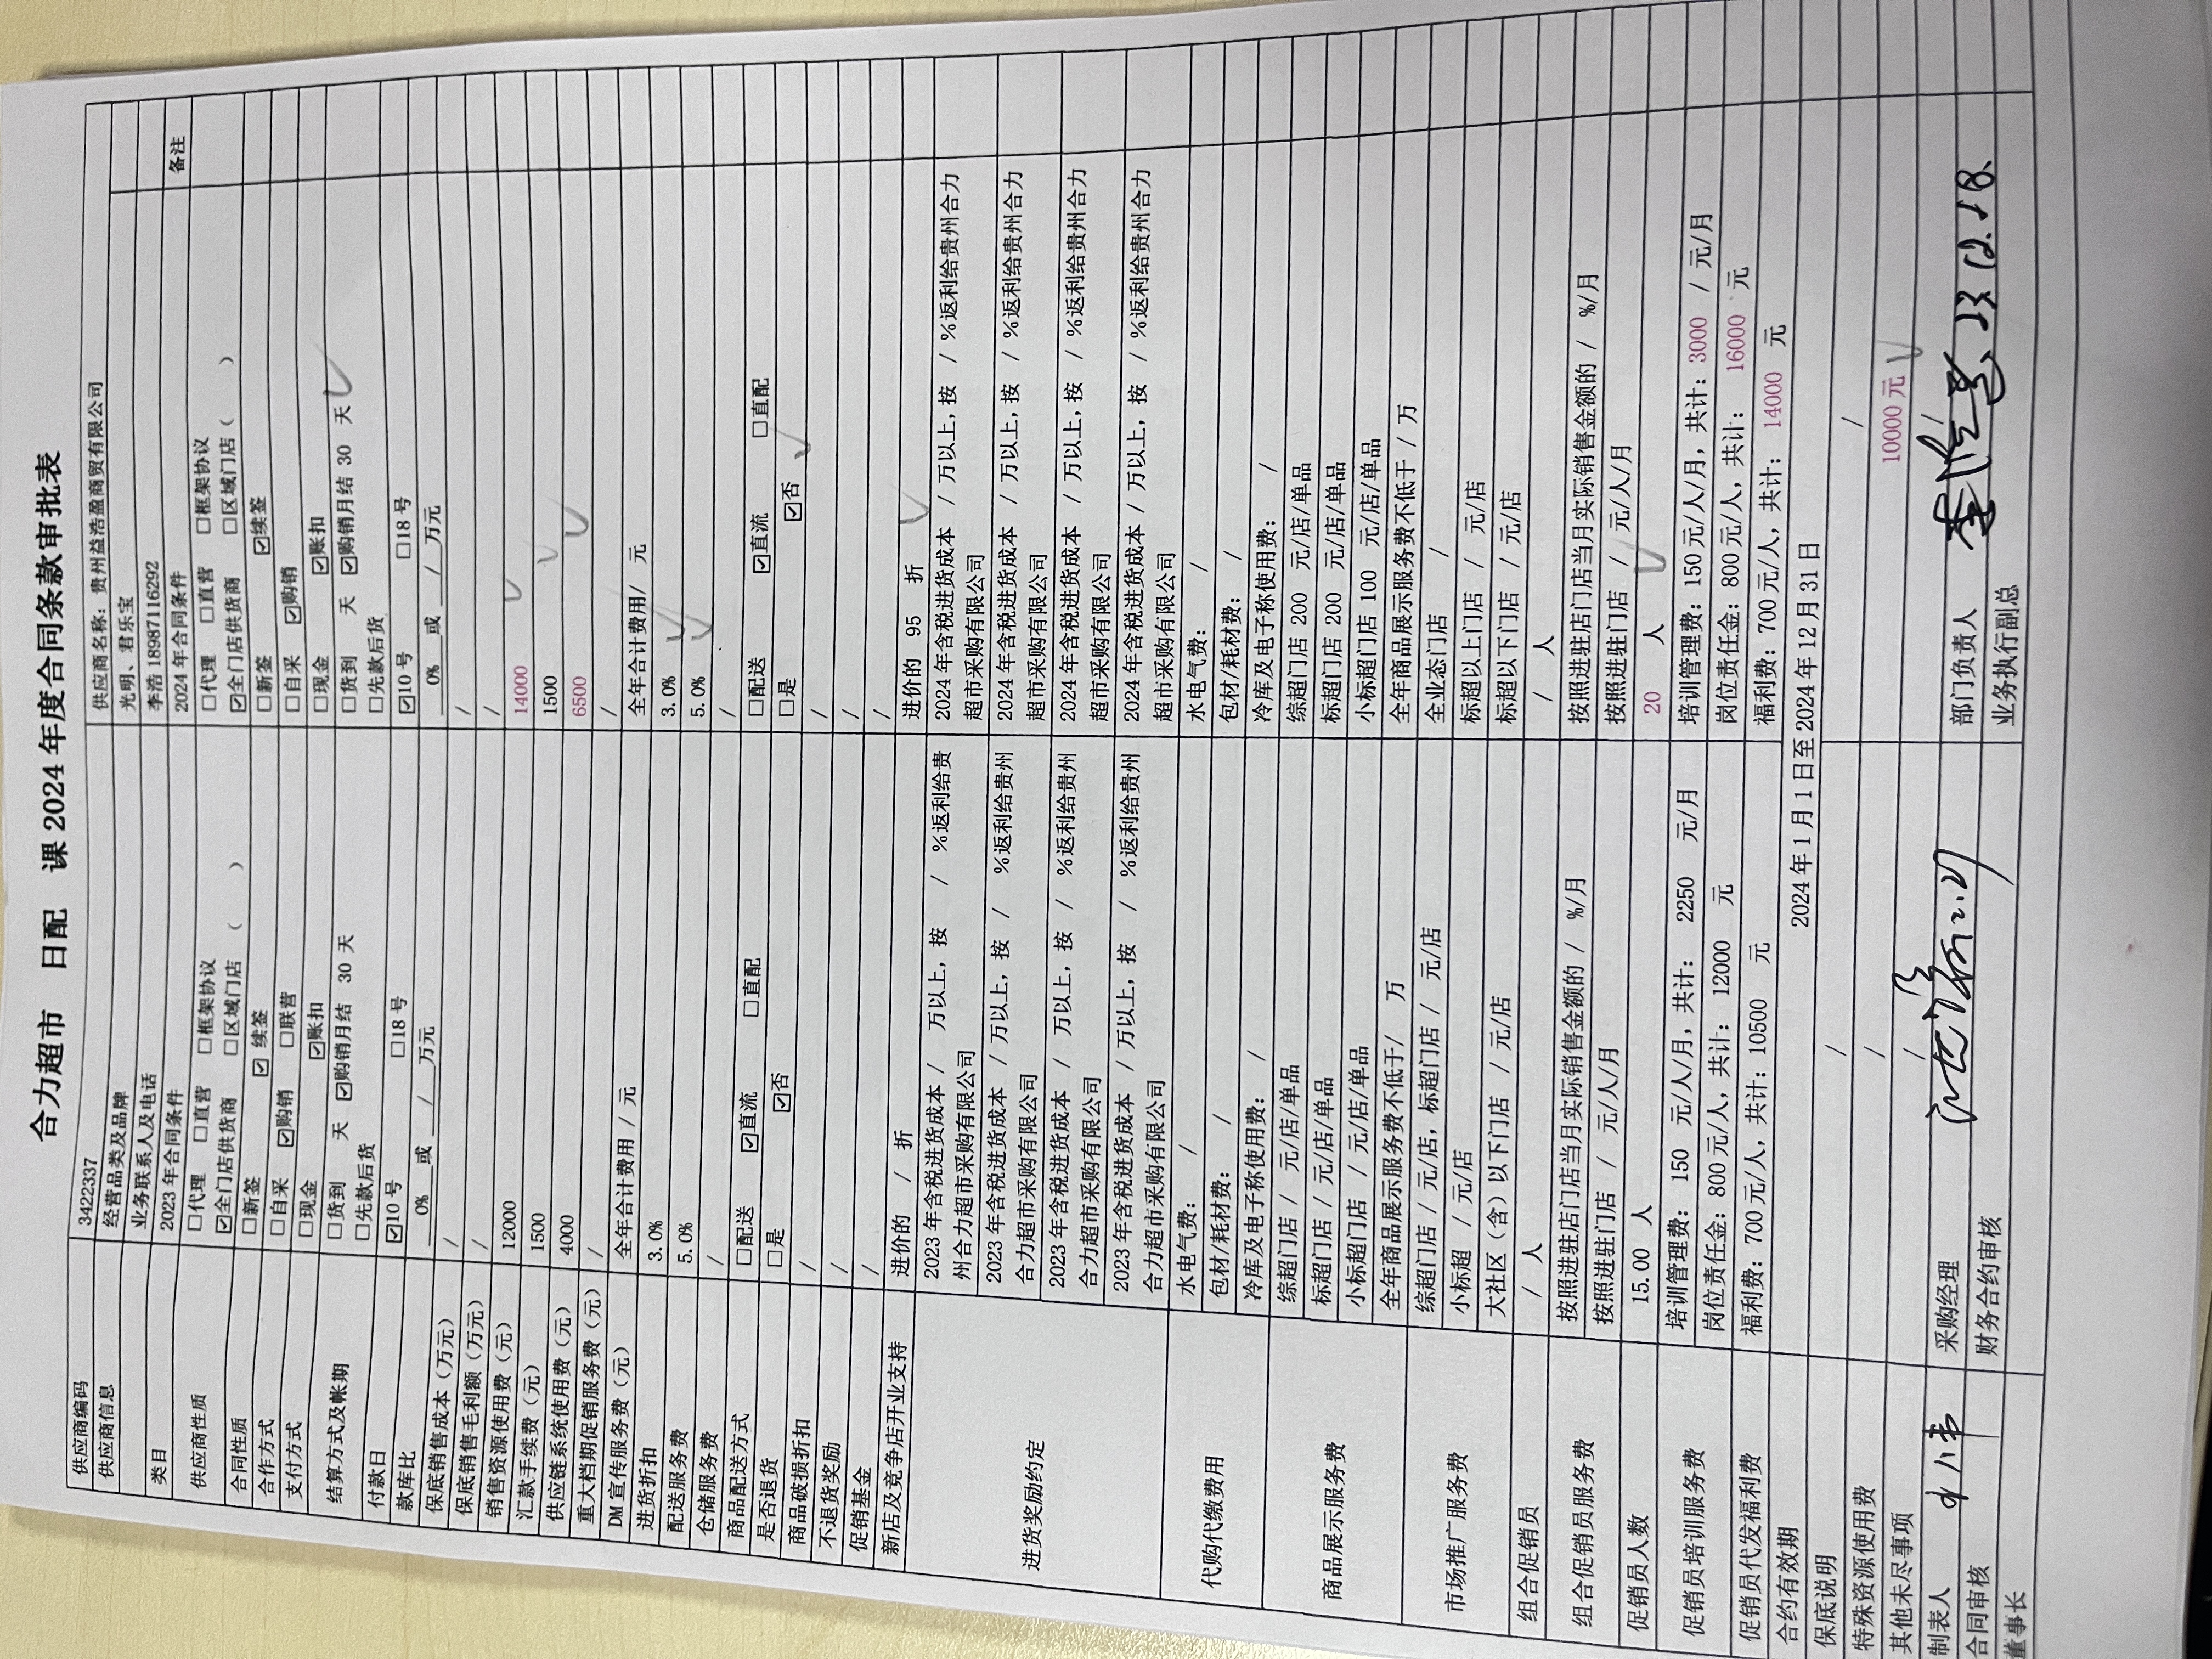 合力超市 日配 课 2024 年度合同条款审批表
供应商编码 3422337 供应商名称：贵州益浩盈商贸有限公司
供应商信息 经营品类及品牌 光明、君乐宝
业务联系人及电话 李浩 18987116292
类目 2023 年合同条件 2024 年合同条件 备注
供应商性质 □代理 □直营 □框架协议 □代理 □直营 □框架协议
☑全门店供货商 □区域门店（ ） ☑全门店供货商 □区域门店（ ）
合同性质 □新签 ☑续签 □新签 ☑续签
合作方式 □自采 ☑购销 □联营 □自采 ☑购销
支付方式 □现金 ☑账扣 □现金 ☑账扣
结算方式及帐期 □货到 天 ☑购销月结 30 天 □货到 天 ☑购销月结 30 天
□先款后货 □先款后货
付款日 ☑10 号 □18 号 ☑10 号 □18 号
款库比 0% 或 / 万元 0% 或 / 万元
保底销售成本（万元） / /
保底销售毛利额（万元） / /
销售资源使用费（元） 12000 14000
汇款手续费（元） 1500 1500
供应链系统使用费（元） 4000 6500
重大档期促销服务费（元） / /
DM 宣传服务费（元） 全年合计费用 / 元 全年合计费用/ 元
进货折扣 3.0% 3.0%
配送服务费 5.0% 5.0%
仓储服务费 / /
商品配送方式 □配送 ☑直流 □直配 □配送 ☑直流 □直配
是否退货 □是 ☑否 □是 ☑否
商品破损折扣 / /
不退货奖励 / /
促销基金 / /
新店及竞争店开业支持 进价的 / 折 进价的 95 折
进货奖励约定 2023 年含税进货成本 / 万以上，按 / %返利给贵州合力超市采购有限公司 2024 年含税进货成本 / 万以上，按 / %返利给贵州合力超市采购有限公司
2023 年含税进货成本 / 万以上，按 / %返利给贵州合力超市采购有限公司 2024 年含税进货成本 / 万以上，按 / %返利给贵州合力超市采购有限公司
2023 年含税进货成本 / 万以上，按 / %返利给贵州合力超市采购有限公司 2024 年含税进货成本 / 万以上，按 / %返利给贵州合力超市采购有限公司
2023 年含税进货成本 / 万以上，按 / %返利给贵州合力超市采购有限公司 2024 年含税进货成本 / 万以上，按 / %返利给贵州合力超市采购有限公司
代购代缴费用 水电气费： / 水电气费： /
包材/耗材费： / 包材/耗材费： /
冷库及电子称使用费： / 冷库及电子称使用费： /
商品展示服务费 综超门店 / 元/店/单品 综超门店 200 元/店/单品
标超门店 / 元/店/单品 标超门店 200 元/店/单品
小标超门店 / 元/店/单品 小标超门店 100 元/店/单品
全年商品展示服务费不低于/ 万 全年商品展示服务费不低于 / 万
市场推广服务费 综超门店 / 元/店，标超门店 / 元/店 全业态门店 /
小标超 / 元/店 标超以上门店 / 元/店
大社区（含）以下门店 / 元/店 标超以下门店 / 元/店
组合促销员 / 人 / 人
组合促销员服务费 按照进驻店门店当月实际销售金额的 / %/月 按照进驻店门店当月实际销售金额的 / %/月
按照进驻门店 / 元/人/月 按照进驻门店 / 元/人/月
促销员人数 15.00 人 20 人
促销员培训服务费 培训管理费： 150 元/人/月，共计： 2250 元/月 培训管理费：150 元/人/月，共计：3000 / 元/月
岗位责任金：800 元/人，共计：12000 元 岗位责任金：800 元/人，共计： 16000 元
促销员代发福利费 福利费：700 元/人，共计：10500 元 福利费：700 元/人，共计： 14000 元
合约有效期 2024 年 1 月 1 日至 2024 年 12 月 31 日
保底说明 / /
特殊资源使用费 / 10000 元
其他未尽事项 /
制表人 采购经理 部门负责人 23.12.18.
合同审核 财务合约审核 业务执行副总
董事长